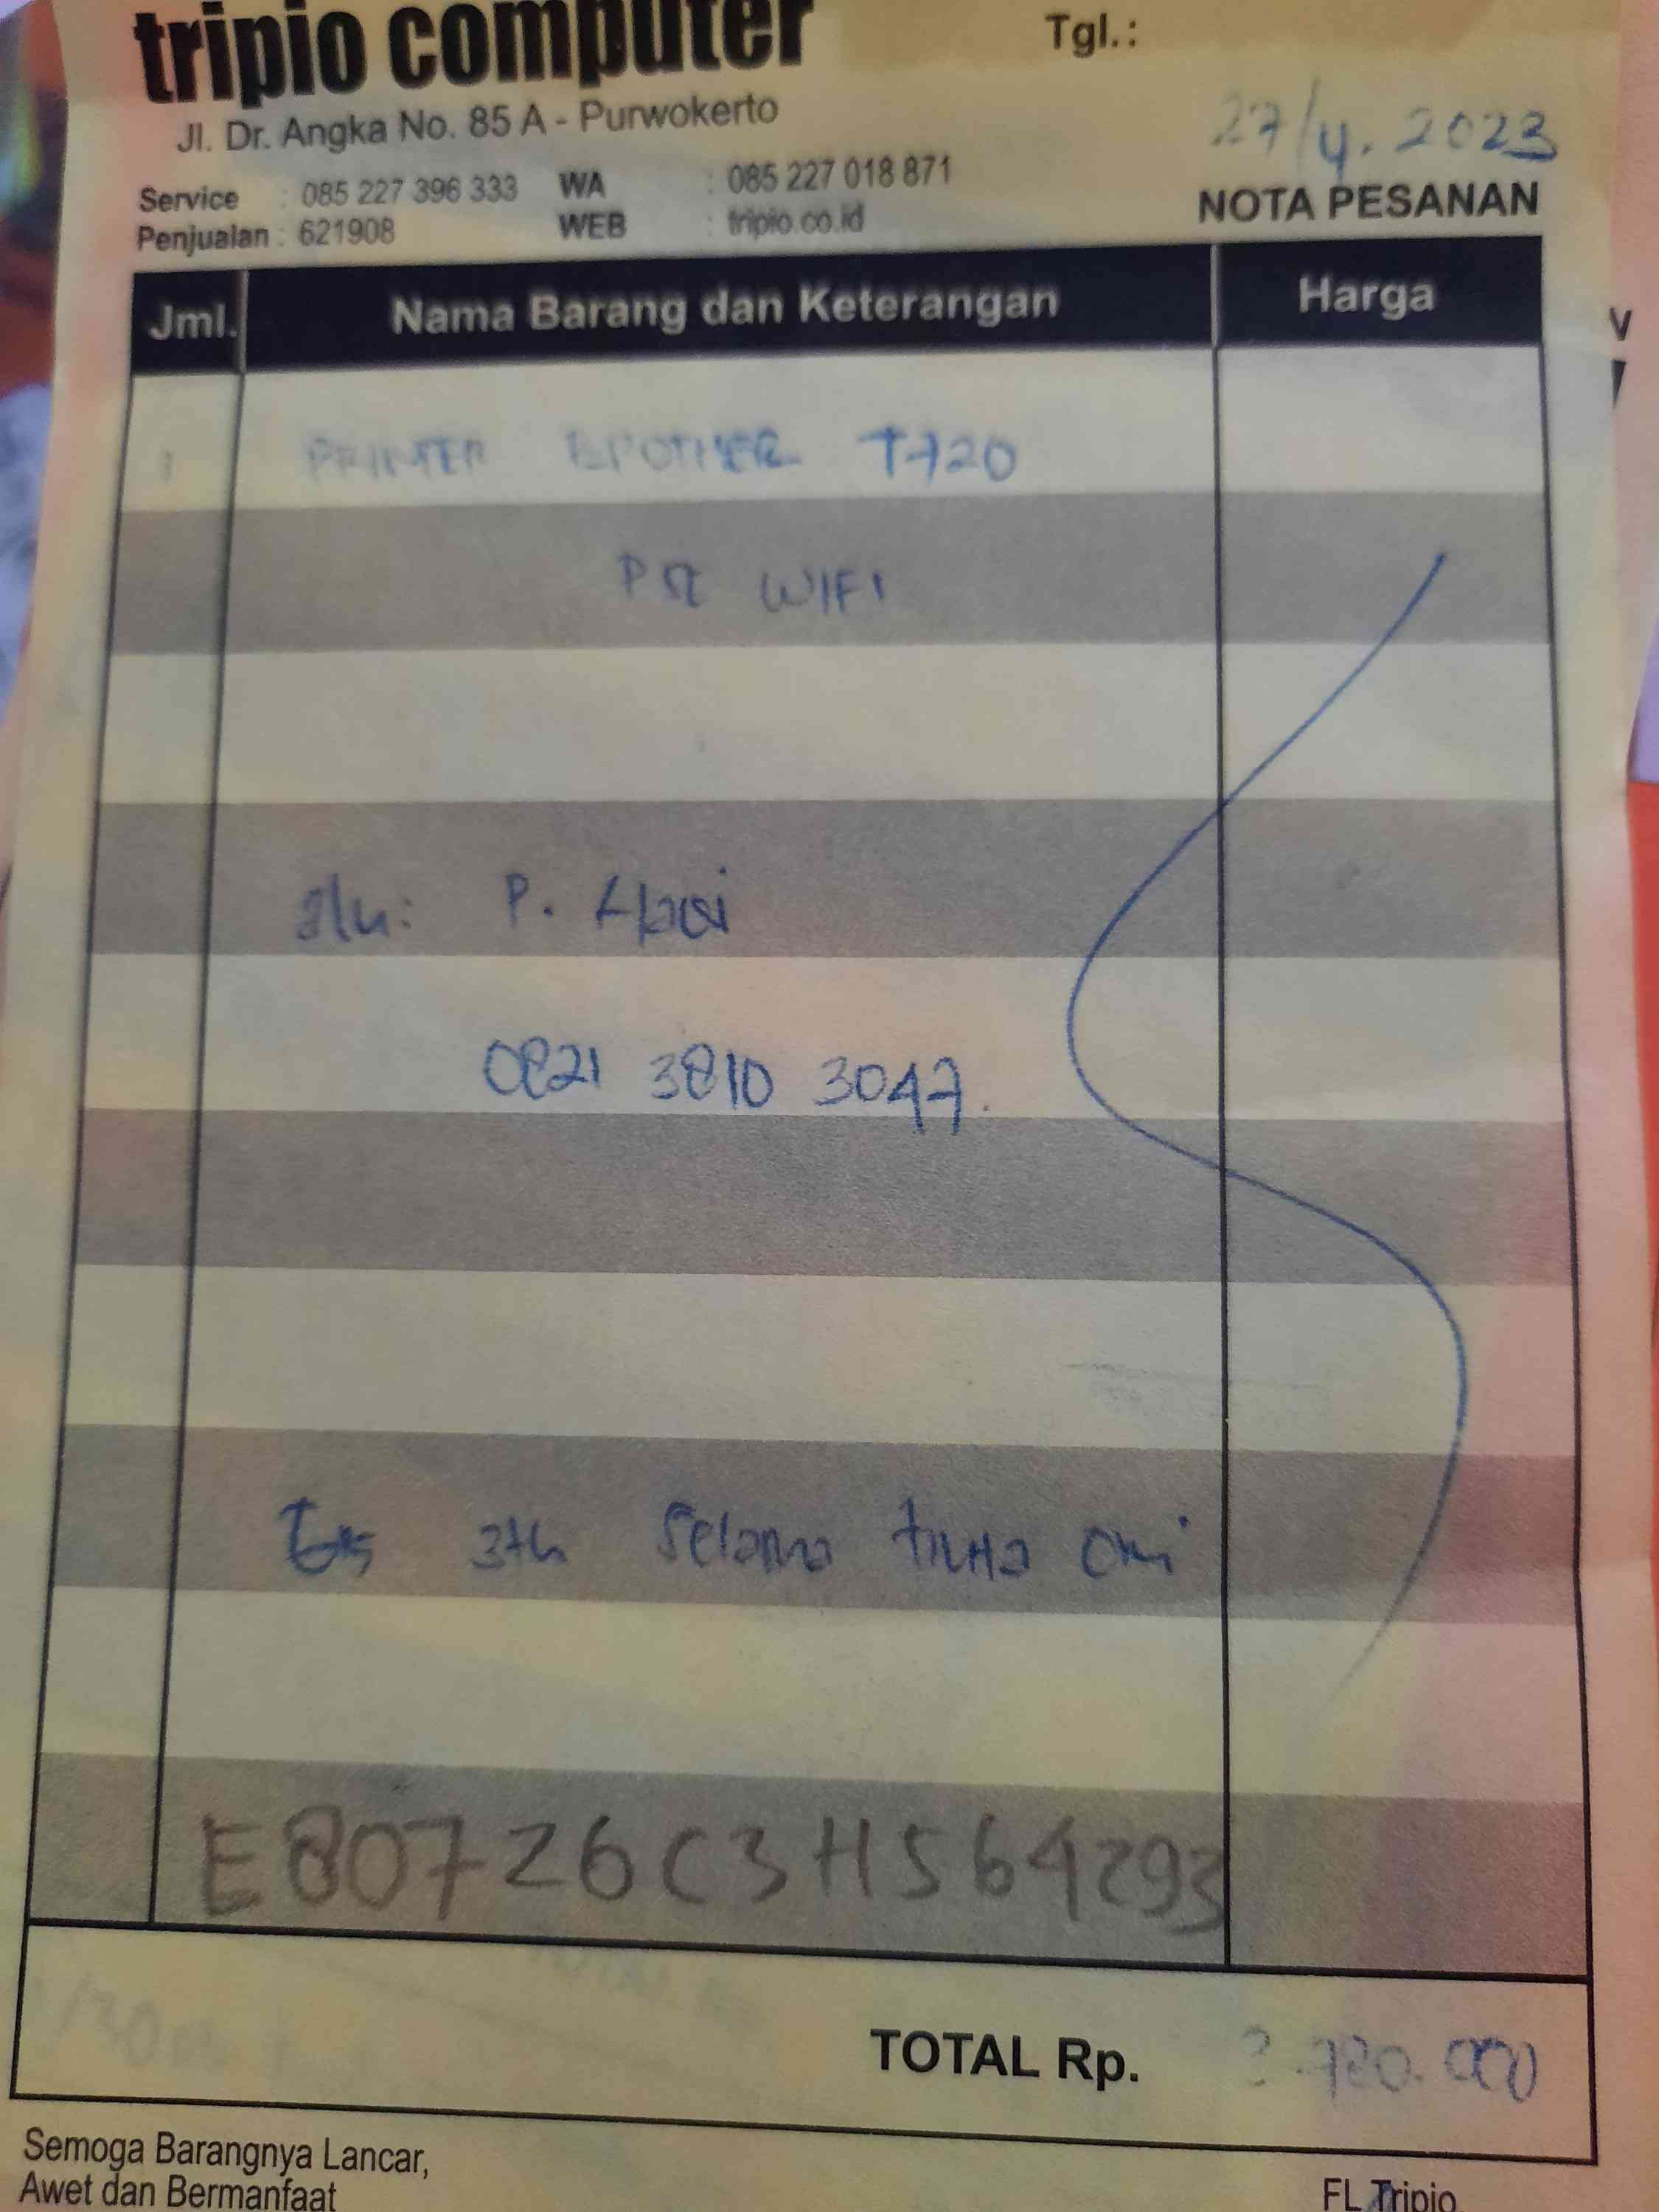 tripio computer
Tgl.:
Jl. Dr. Angka No. 85 A - Purwokerto
27/4. 2023
Service : 085 227 396 333 WA : 085 227 018 871
Penjualan : 621908 WEB : tripio.co.id
NOTA PESANAN
Jml. Nama Barang dan Keterangan Harga
1 PRINTER BROTHER T720
WIFI
P.
0821 3810 3047.
3th Selama tinta ori
E80726C3H564293
TOTAL Rp. 780.000
Semoga Barangnya Lancar,
Awet dan Bermanfaat
FL Tripio